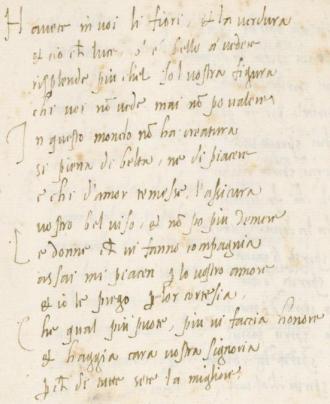 H avete in voi li fiori, et la verdura
et cio ch̃ luce, o è bello a vedere
risplende piu ch'el sol vostra figura
chi voi nõ vede mai nõ po valere
In questo mondo nõ ha creatura
si piena di belta, ne di piacere
e chi d'amor temesse, l'asicura
vostro bel viso, et nõ po piu temere
Le donne ch̃ vi fanno compagnia
assai mi piacen ꝑ lo vostro amore
et io le prego ꝑ lor cortesia,
Che qual piu puote, piu vi faccia honore
et haggia cara vostra signoria
ꝑ ch̃ di tutte sete la migliore